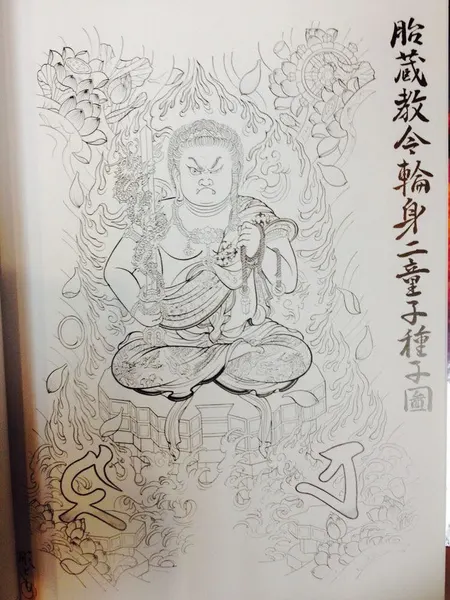 胎藏教令輪身二童子種子圖